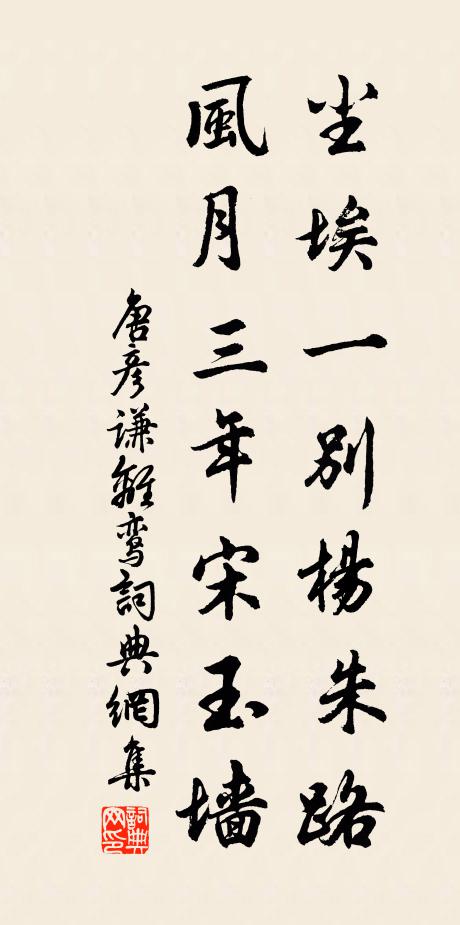 尘埃一别楊朱路
風月三年宋玉墻
唐彦谦離鸾詞典網集
詞典網印